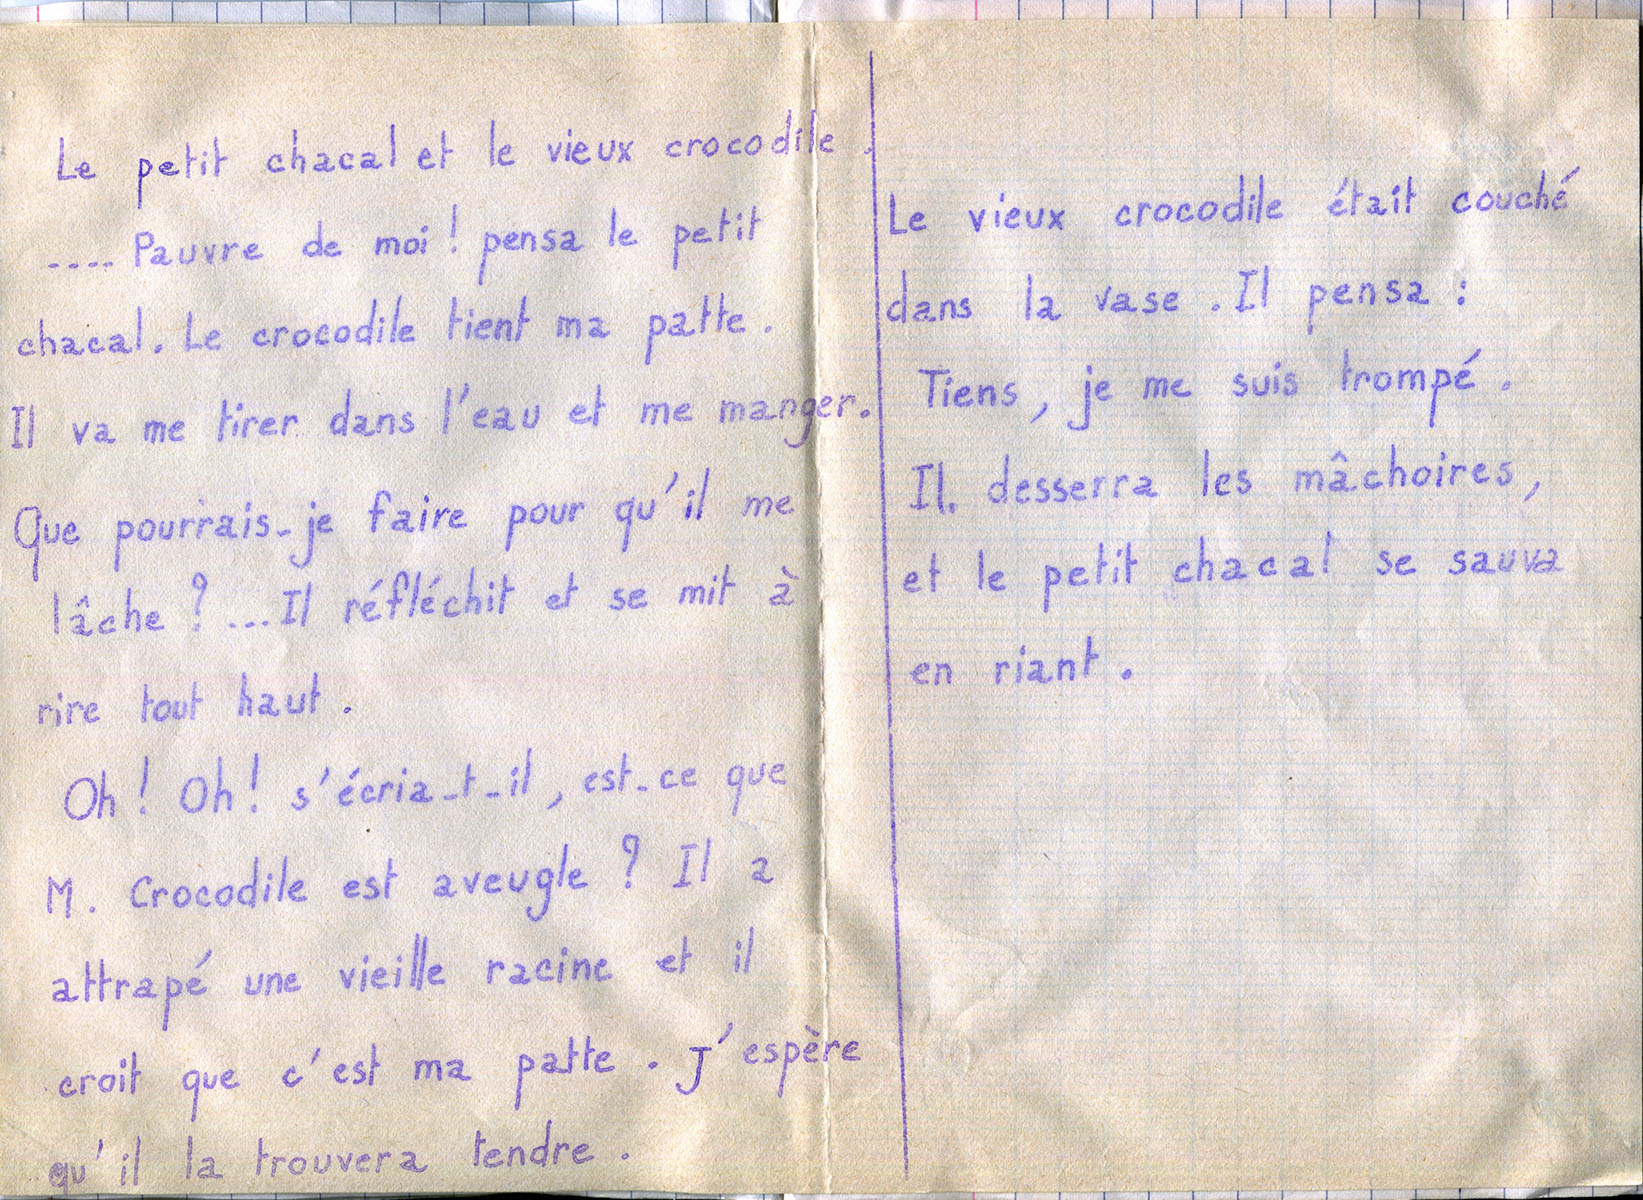 Le petit chacal et le vieux crocodile.
.... Pauvre de moi ! pensa le petit
chacal. Le crocodile tient ma patte.
Il va me tirer dans l'eau et me manger.
Que pourrais-je faire pour qu'il me
lâche ? ... Il réfléchit et se mit à
rire tout haut.
Oh ! Oh ! s'écria-t-il, est-ce que
M. Crocodile est aveugle ? Il a
attrapé une vieille racine et il
croit que c'est ma patte. J'espère
qu'il la trouvera tendre.
Le vieux crocodile était couché
dans la vase. Il pensa :
Tiens, je me suis trompé.
Il. desserra les mâchoires,
et le petit chacal se sauva
en riant.